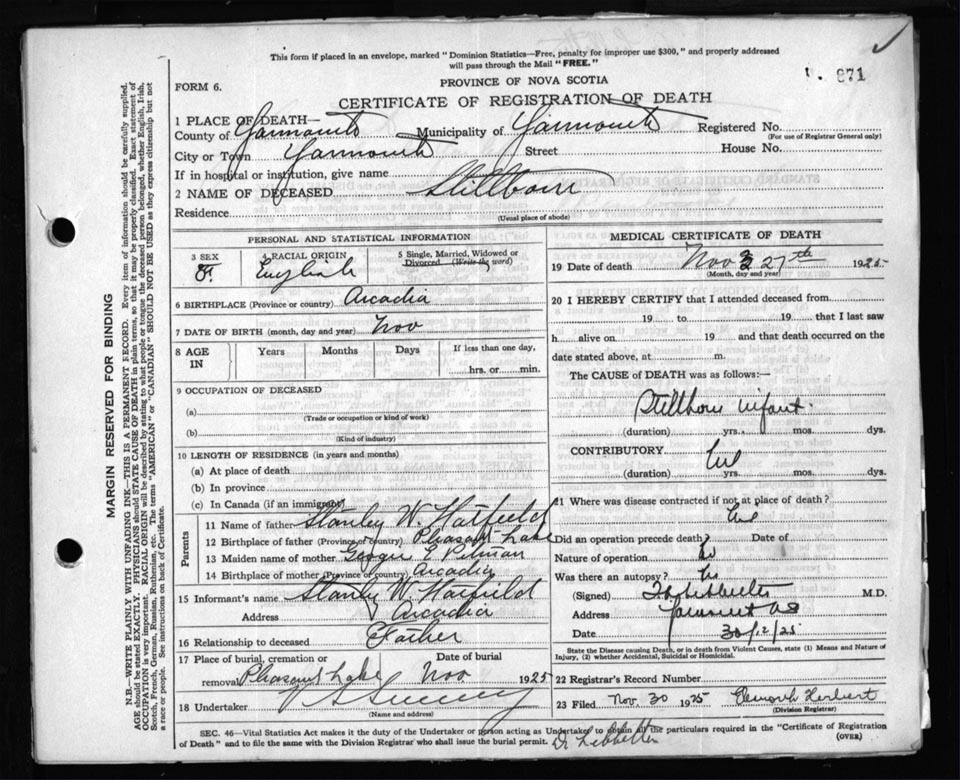 This form if placed in an envelope, marked "Dominion Statistics—Free, penalty for improper use $300," and properly addressed
will pass through the Mail "FREE."
PROVINCE OF NOVA SCOTIA
871
FORM 6.
CERTIFICATE OF REGISTRATION OF DEATH
1 PLACE OF DEATH—
County of Yarmouth Municipality of Yarmouth Registered No.
(For use of Registrar General only)
City or Town Yarmouth Street House No.
If in hospital or institution, give name
2 NAME OF DECEASED Stillborn
Residence
(Usual place of abode)
MARGIN RESERVED FOR BINDING
N.B.—WRITE PLAINLY WITH UNFADING INK—THIS IS A PERMANENT RECORD. Every item of information should be carefully supplied.
AGE should be stated EXACTLY. PHYSICIANS should STATE CAUSE OF DEATH in plain terms, so that it may be properly classified. Exact statement of
OCCUPATION is very important. RACIAL ORIGIN will be described by stating to what people or tongue the deceased person belonged, whether English, Irish,
Scotch, French, German, Russian, Ruthenian, etc. The terms "AMERICAN" or "CANADIAN" SHOULD NOT BE USED as they express citizenship but not
a race or people. See instructions on back of Certificate.
PERSONAL AND STATISTICAL INFORMATION
3 SEX F. 4 RACIAL ORIGIN English 5 Single, Married, Widowed or
Divorced (Write the word)
6 BIRTHPLACE (Province or country) Arcadia
7 DATE OF BIRTH (month, day and year) Nov
8 AGE IN Years Months Days If less than one day,
hrs. or min.
9 OCCUPATION OF DECEASED
(a)
(Trade or occupation or kind of work)
(b)
(Kind of industry)
10 LENGTH OF RESIDENCE (in years and months)
(a) At place of death
(b) In province
(c) In Canada (if an immigrant)
Parents
11 Name of father Stanley W. Hatfield
12 Birthplace of father (Province or country) Pleasant Lake
13 Maiden name of mother Georgie E Pitman
14 Birthplace of mother (Province or country) Arcadia
15 Informant's name Stanley W. Hatfield
Address Arcadia
16 Relationship to deceased Father
17 Place of burial, cremation or Date of burial
removal Pleasant Lake Nov 1925
18 Undertaker
(Name and address)
MEDICAL CERTIFICATE OF DEATH
19 Date of death Nov 27th 1925
(Month, day and year)
20 I HEREBY CERTIFY that I attended deceased from
19 to 19 that I last saw
h alive on 19 and that death occurred on the
date stated above, at m.
The CAUSE of DEATH was as follows:—
Stillborn infant.
(duration) yrs. mos. dys.
CONTRIBUTORY
(duration) yrs. mos. dys.
21 Where was disease contracted if not at place of death?
Did an operation precede death? Date of
Nature of operation
Was there an autopsy?
(Signed) M.D.
Address Yarmouth NS
Date 30/12/25
State the Disease causing Death, or in death from Violent Causes, state (1) Means and Nature of
Injury, (2) whether Accidental, Suicidal or Homicidal.
22 Registrar's Record Number
23 Filed Nov. 30 1925 Herbert
(Division Registrar)
SEC. 46—Vital Statistics Act makes it the duty of the Undertaker or person acting as Undertaker to obtain all the particulars required in the "Certificate of Registration
of Death" and to file the same with the Division Registrar who shall issue the burial permit.
(OVER)